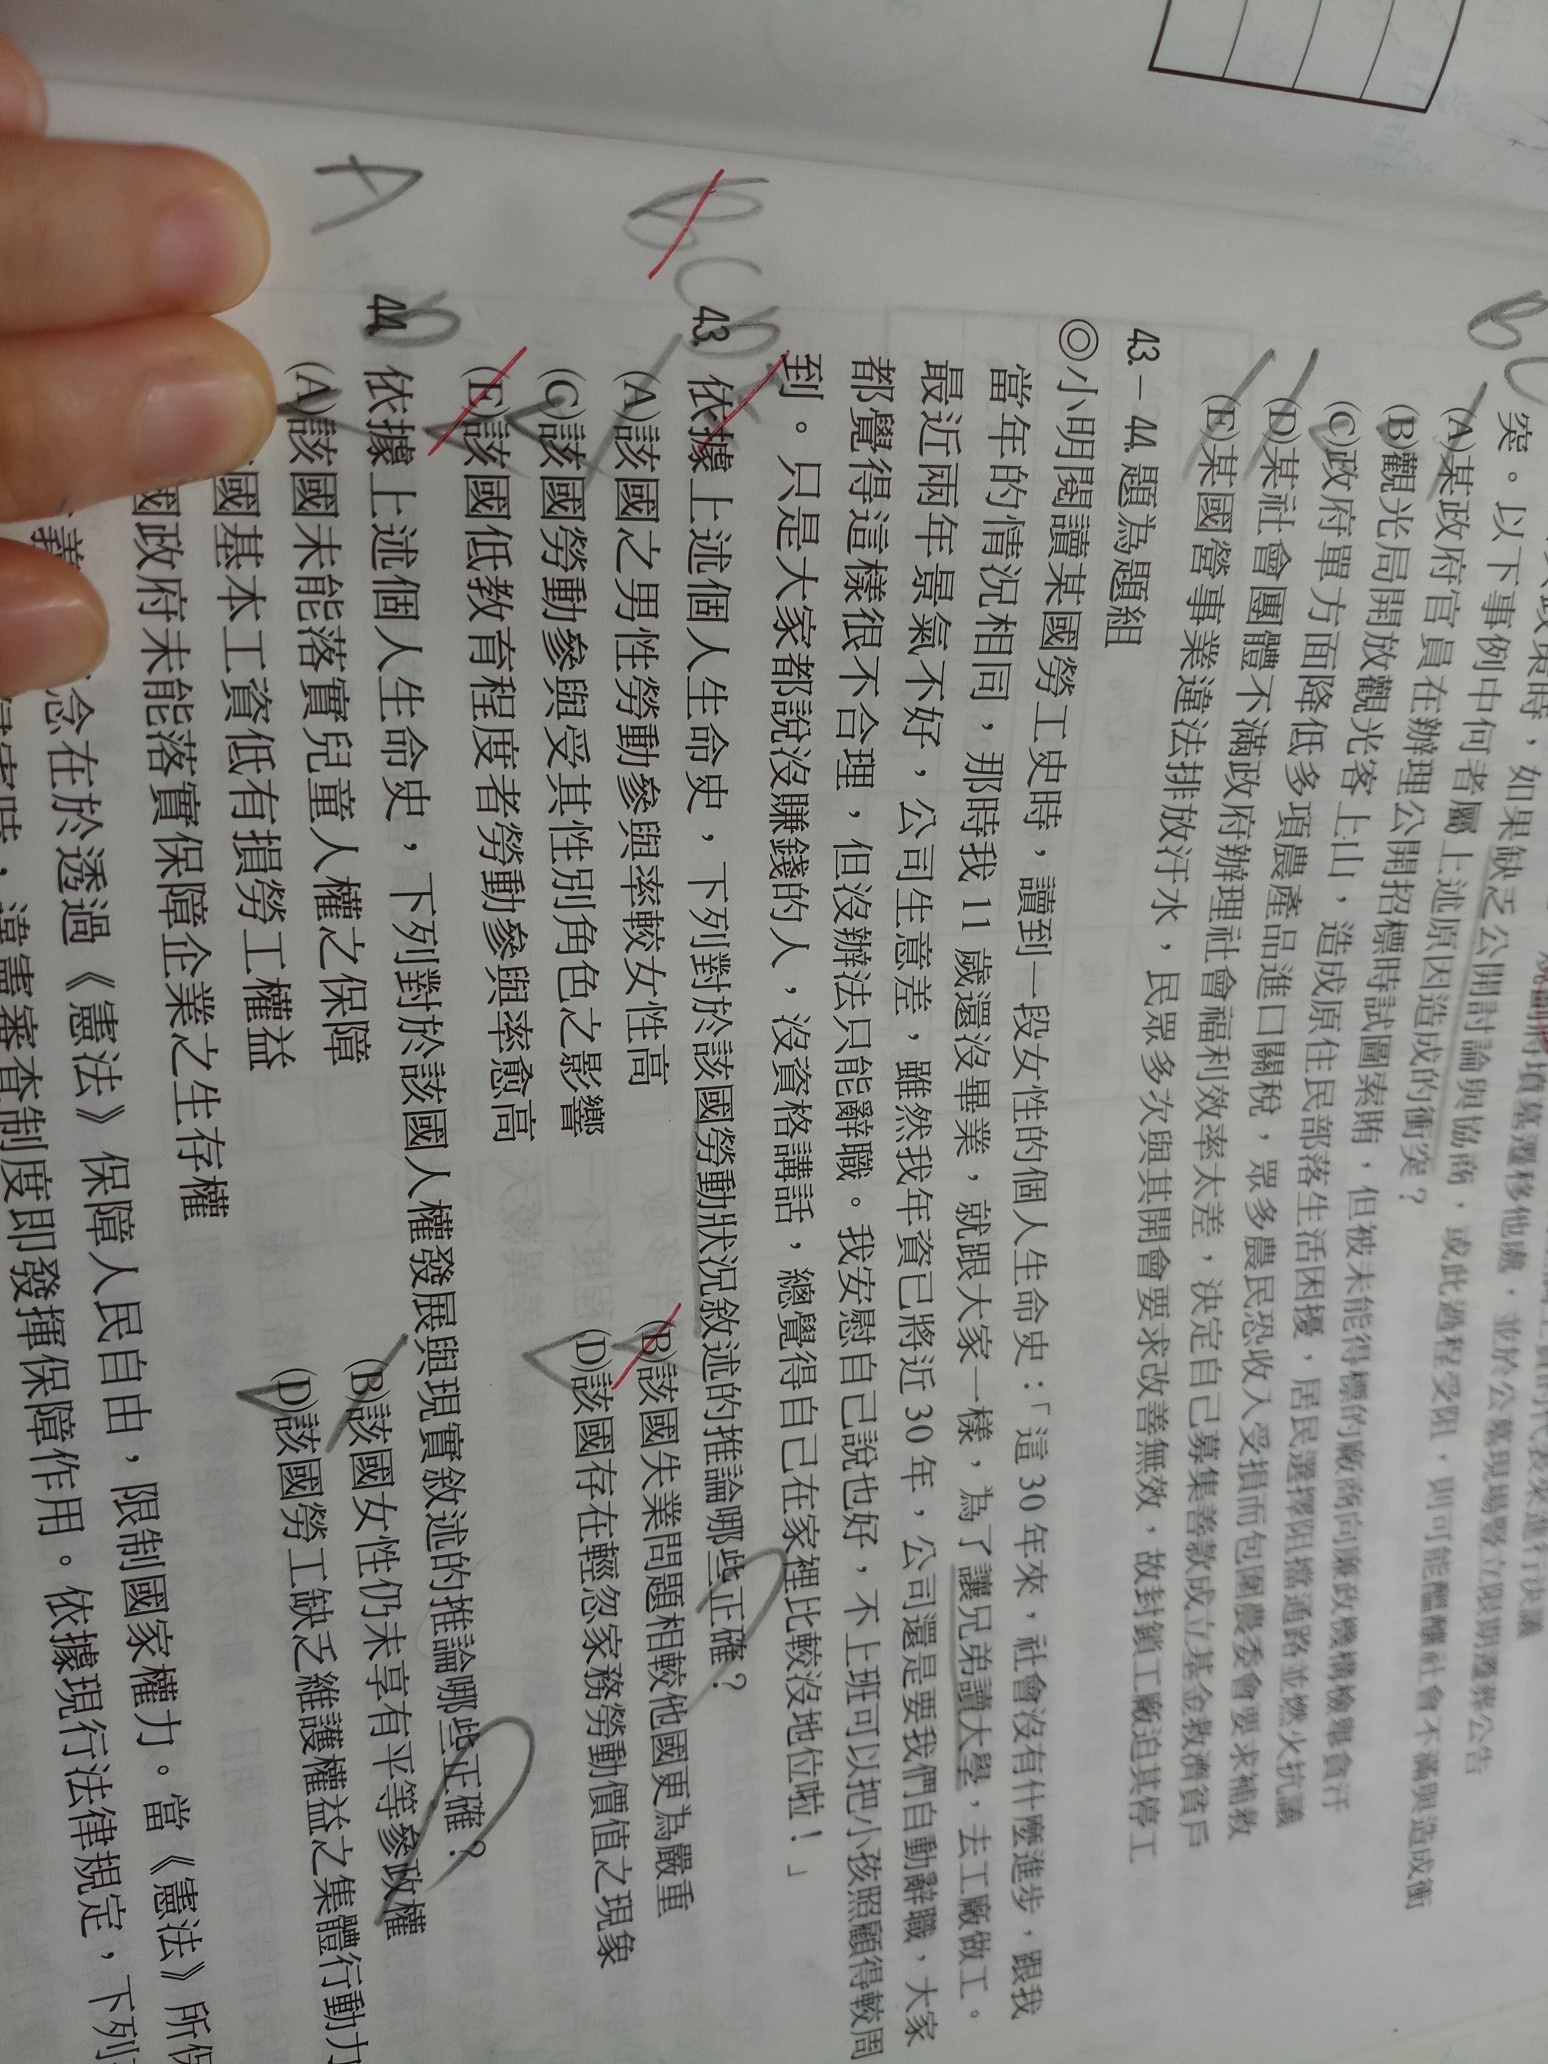 突。以下事例中何者屬上述原因造成的衝突？
(A)某政府官員在辦理公開招標時試圖索賄，但被未能得標的廠商向廉政機構檢舉貪汙
(B)觀光局開放觀光客上山，造成原住民部落生活困擾，居民選擇阻擋通路並燃火抗議
(C)政府單方面降低多項農產品進口關稅，眾多農民恐收入受損而包圍農委會要求補救
(D)某社會團體不滿政府辦理社會福利效率太差，決定自己募集善款成立基金救濟貧戶
(E)某國營事業違法排放汙水，民眾多次與其開會要求改善無效，故封鎖工廠迫其停工
43.－44.題為題組
◎小明閱讀某國勞工史時，讀到一段女性的個人生命史：「這30年來，社會沒有什麼進步，跟我
當年的情況相同，那時我11歲還沒畢業，就跟大家一樣，為了讓兄弟讀大學，去工廠做工。
最近兩年景氣不好，公司生意差，雖然我年資已將近30年，公司還是要我們自動辭職，大家
都覺得這樣很不合理，但沒辦法只能辭職。我安慰自己說也好，不上班可以把小孩照顧得較周
到。只是大家都說沒賺錢的人，沒資格講話，總覺得自己在家裡比較沒地位啦！」
BCD
43. 依據上述個人生命史，下列對於該國勞動狀況敘述的推論哪些正確？
(A)該國之男性勞動參與率較女性高 (B)該國失業問題相較他國更為嚴重
(C)該國勞動參與受其性別角色之影響 (D)該國存在輕忽家務勞動價值之現象
(E)該國低教育程度者勞動參與率愈高
AD
44. 依據上述個人生命史，下列對於該國人權發展與現實敘述的推論哪些正確？
(A)該國未能落實兒童人權之保障 (B)該國女性仍未享有平等參政權
國基本工資低有損勞工權益 (D)該國勞工缺乏維護權益之集體行動力
國政府未能落實保障企業之生存權
念在於透過《憲法》保障人民自由，限制國家權力。當《憲法》所保
違憲審查制度即發揮保障作用。依據現行法律規定，下列